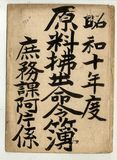 昭和十年度
原料拂出命令簿
庶務課阿片係